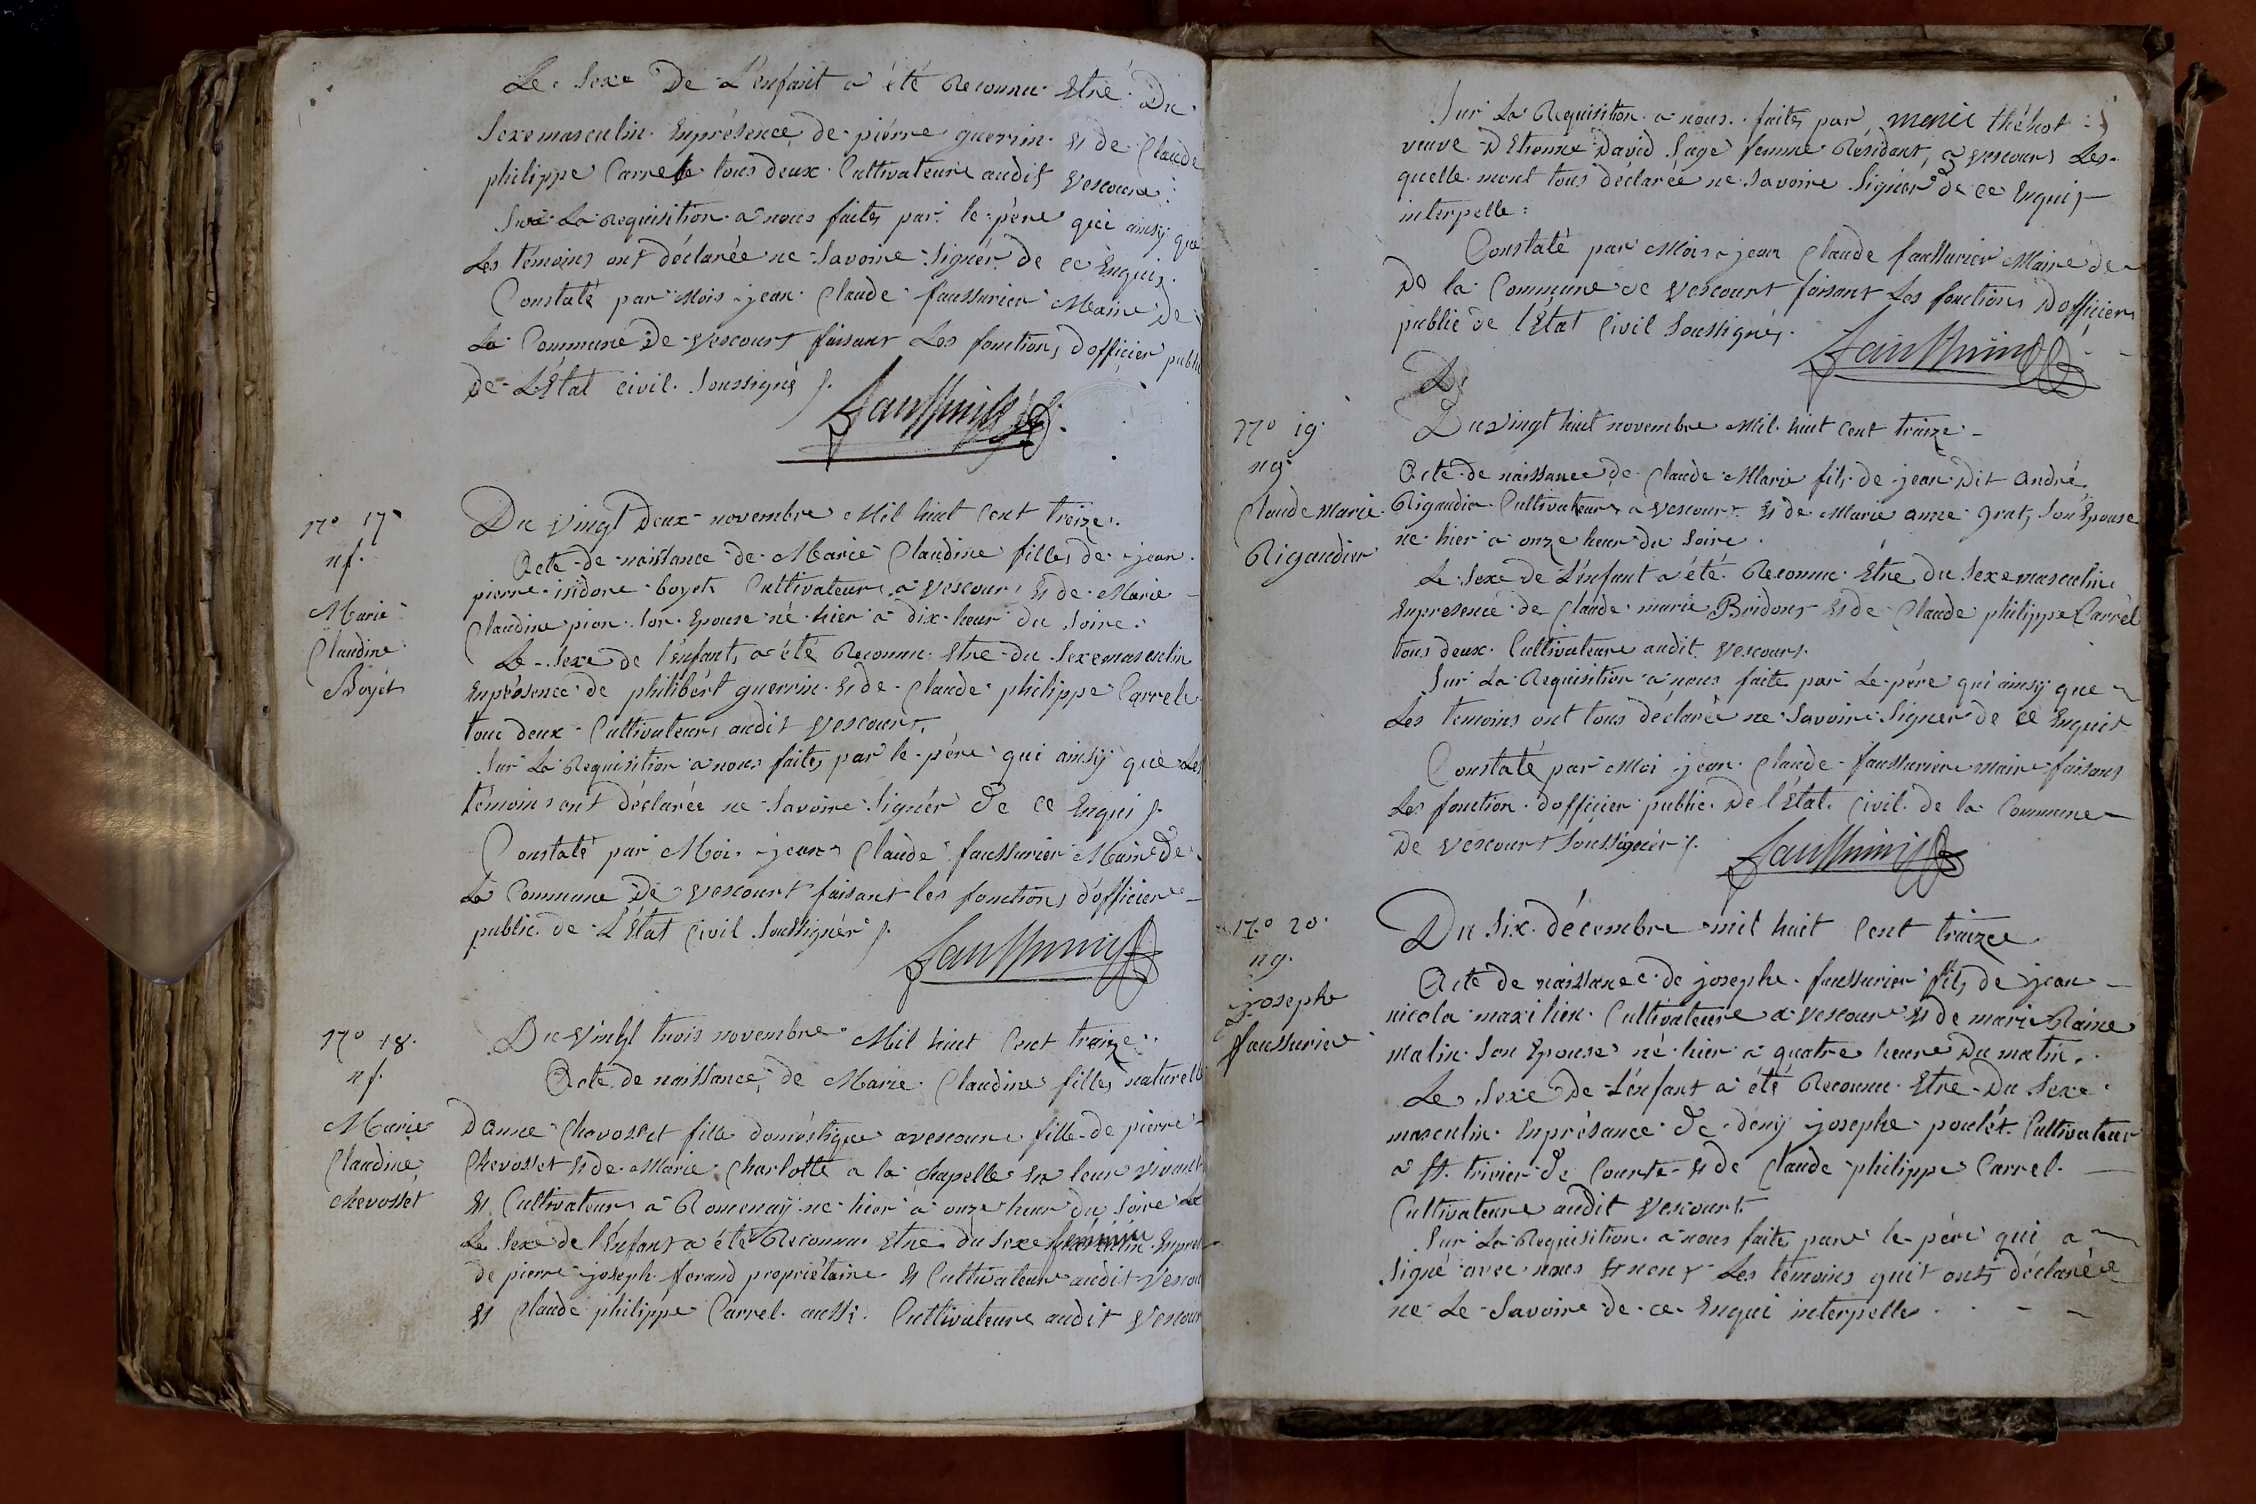 Le Sexe De L'enfant a été Reconnu Etre Du
Sexe masculin Enprésence de piérre guerrin Et de Claude
philippe Carrel tous deux Cultivateure audit Vescoure
Sur La Requisition a nous faites par le père qui ainsy que
Les témoins ont déclarée ne Savoire Signér De ce Enquis.
Constaté par Mois jean Claude faussurier Maire De
La Commune De Vescourt faisant Les fonctions d'officier public
De L'Etat civil Soussigné
faussurier
N° 17
nf.
Marie
Claudine
Boyet
Du vingt Deux novembre Mil huit Cent treize.
Acte de naissance de Marie Claudine filles de jean
pierre isidore boyet Cultivateur a Vescour Et de Marie
Claudine pion Son Epouse né hier a dix heur du Soire.
Le Sexe de l'enfant a été Reconnu Etre du Sexe masculin
Enprésence de philibért guerrin Et de Claude philippe Carrele
tout deux Cultivateurs audit Vescourt,
Sur La Requisition a nous faites par le pére qui ainsÿ que Les
témoins ont déclarée ne Savoire Signér de ce Enquis
Constaté par Mois jean Claude faussurier Maire de
La Commune De Vescourt faisant les fonctions d'officier
public de L'Etat Civil Soussignér
faussurier
N° 18.
nf.
Marie
Claudine
chevosset
Du Vingt trois novembre Mil huit Cent treize.
Acte de naissance de Marie Claudine filles naturelle
D'anne Chavosset fille doméstique a vescoure fille de pierre
Chevosset Et de Marie Charlotte a la Chapelle En leur vivant
Et Cultivateurs a Romenaÿ ne hier a onze heur du Soire Le
Le Sexe de l'Enfant a été Reconnu Etre du Sexe féminin Enpres
de pierre joseph ferand propriétaire Et Cultivateur audit Vescou
Et Claude philippe Carrel aussi Cultivateure audit Vescour
Sur La Requisition a nous faites par Marie théhot
veuve D'Etienne David Sage femme Résidant a Vescours Les
quelle mont tous déclarée ne Savoire Signér de ce Enquis
interpelle :
Constaté par Mois jean Claude faussurier Maire de
De la Commune de Vescourt faisant Les fonctions D'officier
public de l'État Civil Soussignés.
faussurier
N° 19.
ng.
Claude Marie
Rigaudier
Du vingt huit novembre Mil huit Cent traize
Acte de naissance de Claude Marie fils de jean Dit André
Rigaudier Cultivateurs a Vescours Et de Marie anne grat, Son Epouse
ne hier a onze heur du Soire.
Le Sexe de L'enfant a été Reconnu Étre du Sexe masculin
Enpresence de Claude marie Bridons Et de Claude philippe Carrel
tous deux Cultivateure audit Vescourt.
Sur La Requisition a nous faite par Le pére qui ainsÿ que
Les temoins ont tous déclarée ne Savoire Signer de ce Enquit
Constaté par Moi jean Claude faussurier maire faisans
Les fonction d'officier public De l'État Civil de la Commune
De Vescourt Soussignér
faussurier
N° 20.
ng.
josephe
faussurier
Du Six décembre mil huit Cent traizee
Acte de naissance de josephe faussurier fils de jean
nicola maxilien Cultivateure a vescour Et de marie Raine
malin Son Epouse né hier a quatre heure Du matin.
Le Sexe De L'énfant a été Reconnu Etre Du Sexe
masculin Enprésance de deny josephe poulét Cultivateur
a St. trivier de Courte Et de Claude philippe Carrel
Cultivateure audit Vescourt.
Sur La Requisition a nous faite pare le pére qui a
Signé avec nous Et non Les témoins quit ont déclarée
ne Le Savoire de ce Enqui interpelles